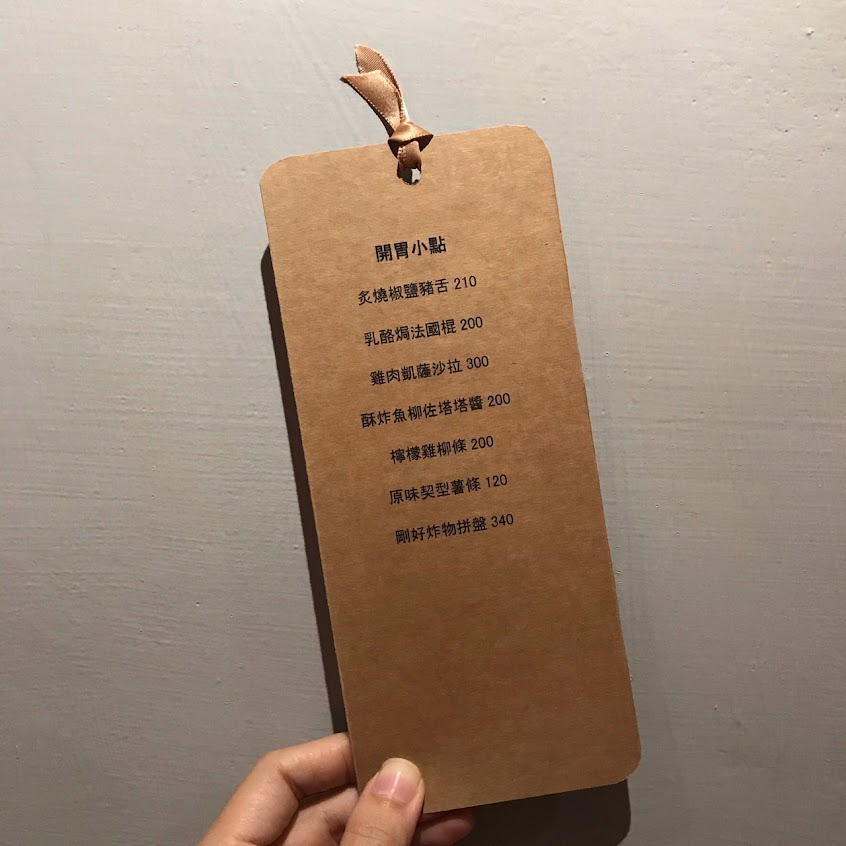 開胃小點
炙燒椒鹽豬舌 210
乳酪焗法國棍 200
雞肉凱薩沙拉 300
酥炸魚柳佐塔塔醬 200
檸檬雞柳條 200
原味契型薯條 120
剛好炸物拼盤 340